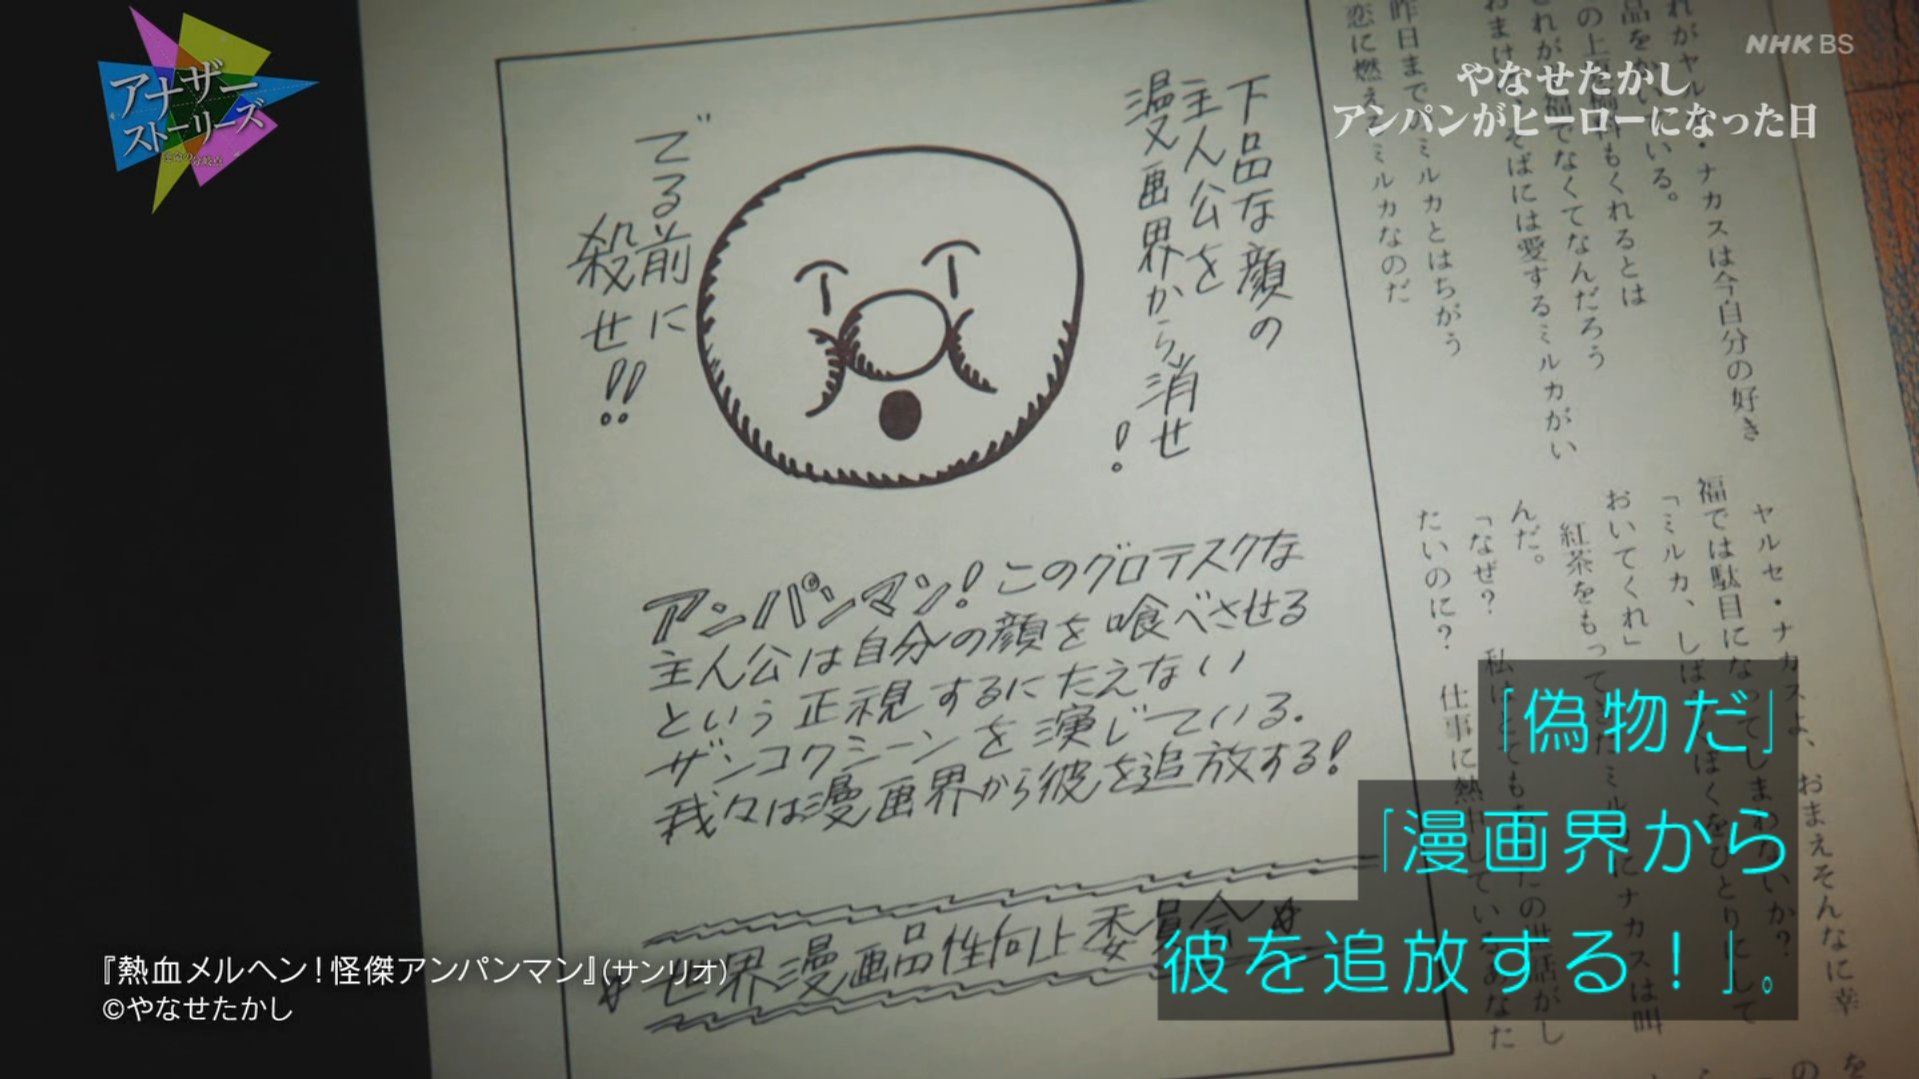 アナザー
ストーリーズ
NHK BS
やなせたかし
アンパンがヒーローになった日
下品な顔の
主人公を
漫画界から消せ!
でる前に
殺せ!!
アンパンマン!このグロテスクな
主人公は自分の顔を喰べさせる
という正視するにたえない
ザンコクシーンを演じている.
我々は漫画界から彼を追放する!
世界漫画品性向止委員会
品を
の上
恋に燃え
ミルカなのだ
昨日まで
ミルカとはちがう
そばには愛するミルカがい
福でなくてなんだろう
もくれるとは
いる。
ナカスは今自分の好き
ヤルセ・ナカスよ、おまえそんなに幸
福では駄目になってしまわないか?
「ミルカ、しば
ぼくをひとりにして
おいてくれ」
紅茶をもって
ミル
にナカスは叫
んだ。
「なぜ? 私は
とても
の世話がし
たいのに? 仕事に熱中している
あなた
「偽物だ」
「漫画界から
彼を追放する!」。
『熱血メルヘン!怪傑アンパンマン』(サンリオ)
©やなせたかし